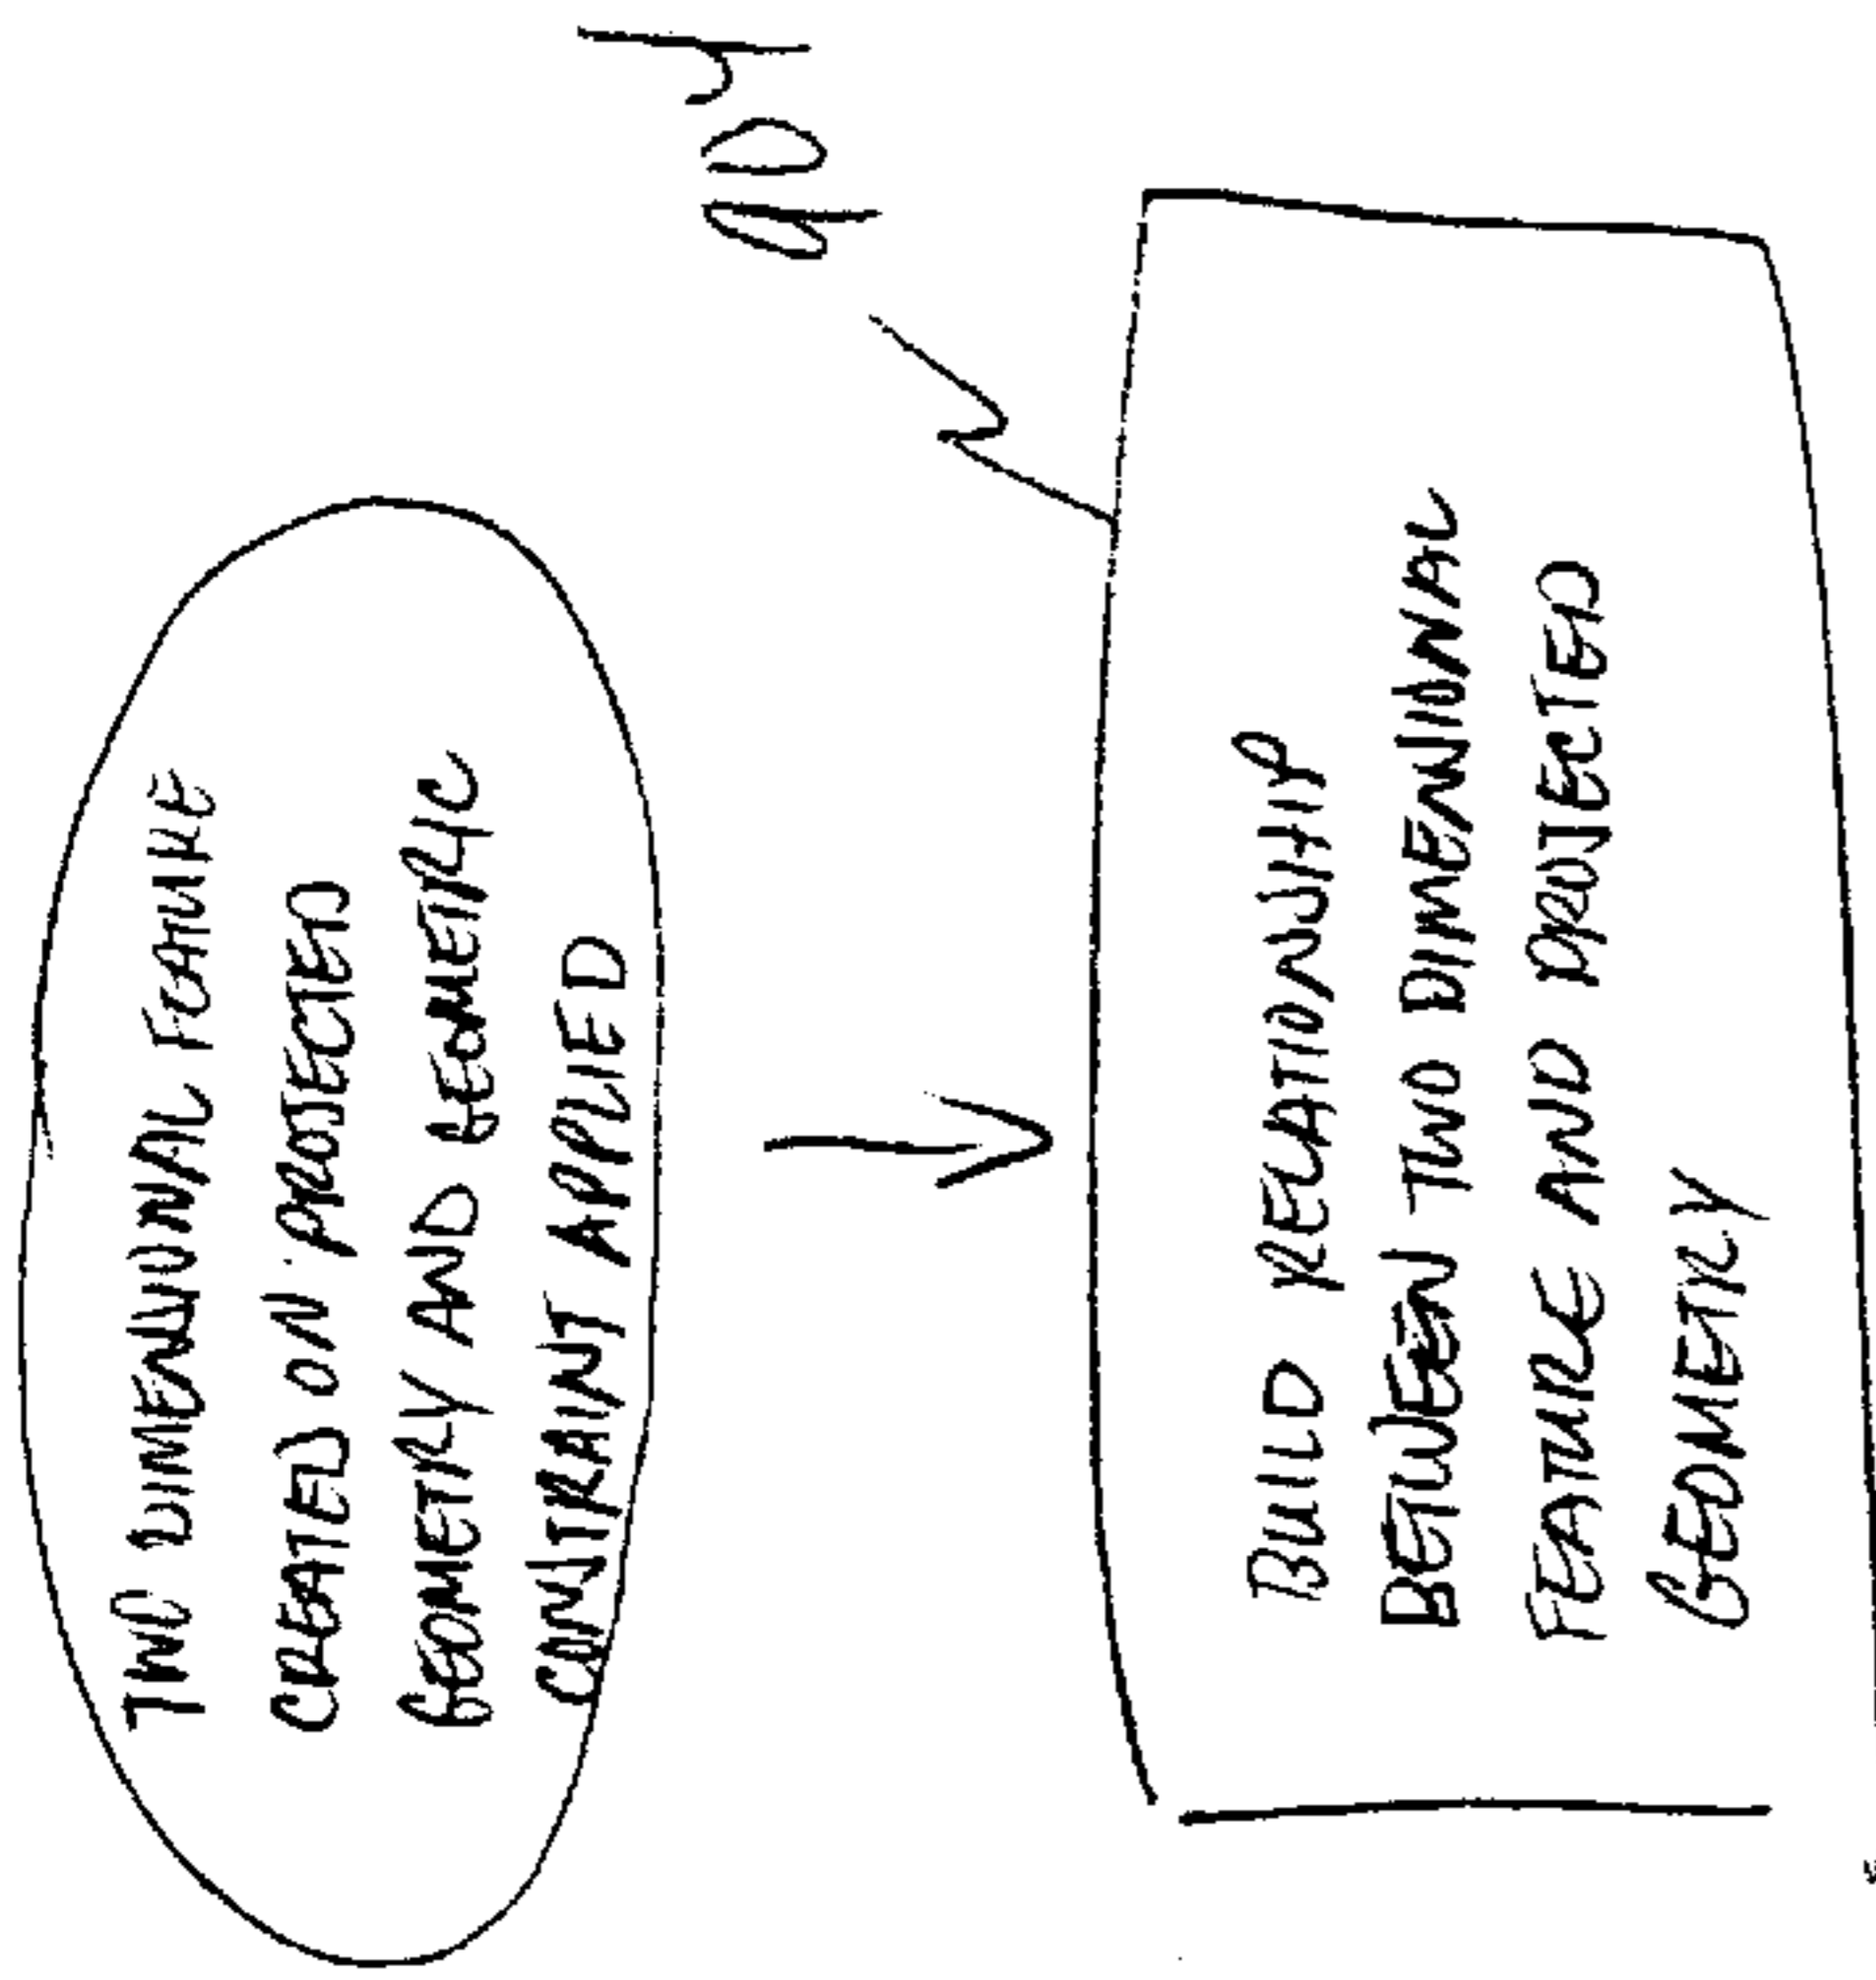 TWO DIMENSIONAL FEATURE
CREATED ON PROJECTED
GEOMETRY AND GEOMETRIC
CONSTRAINT APPLIED
904
BUILD RELATIONSHIP
BETWEEN TWO DIMENSIONAL
FEATURE AND PROJECTED
GEOMETRY